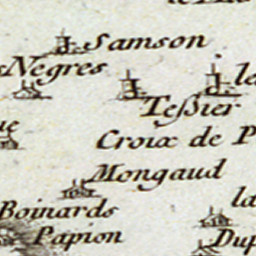 Samson
Negres
Teßier
Croix de P
Mongaud
la
Boinards
Papion
Dup